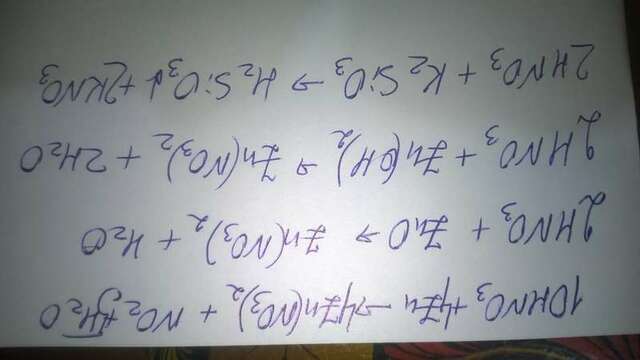 10HNO₃ + 4Zn → 4Zn(NO₃)₂ + NO₂ + 5H₂O
2HNO₃ + ZnO → Zn(NO₃)₂ + H₂O
2HNO₃ + Zn(OH)₂ → Zn(NO₃)₂ + 2H₂O
2HNO₃ + K₂SiO₃ → H₂SiO₃↓ + 2KNO₃